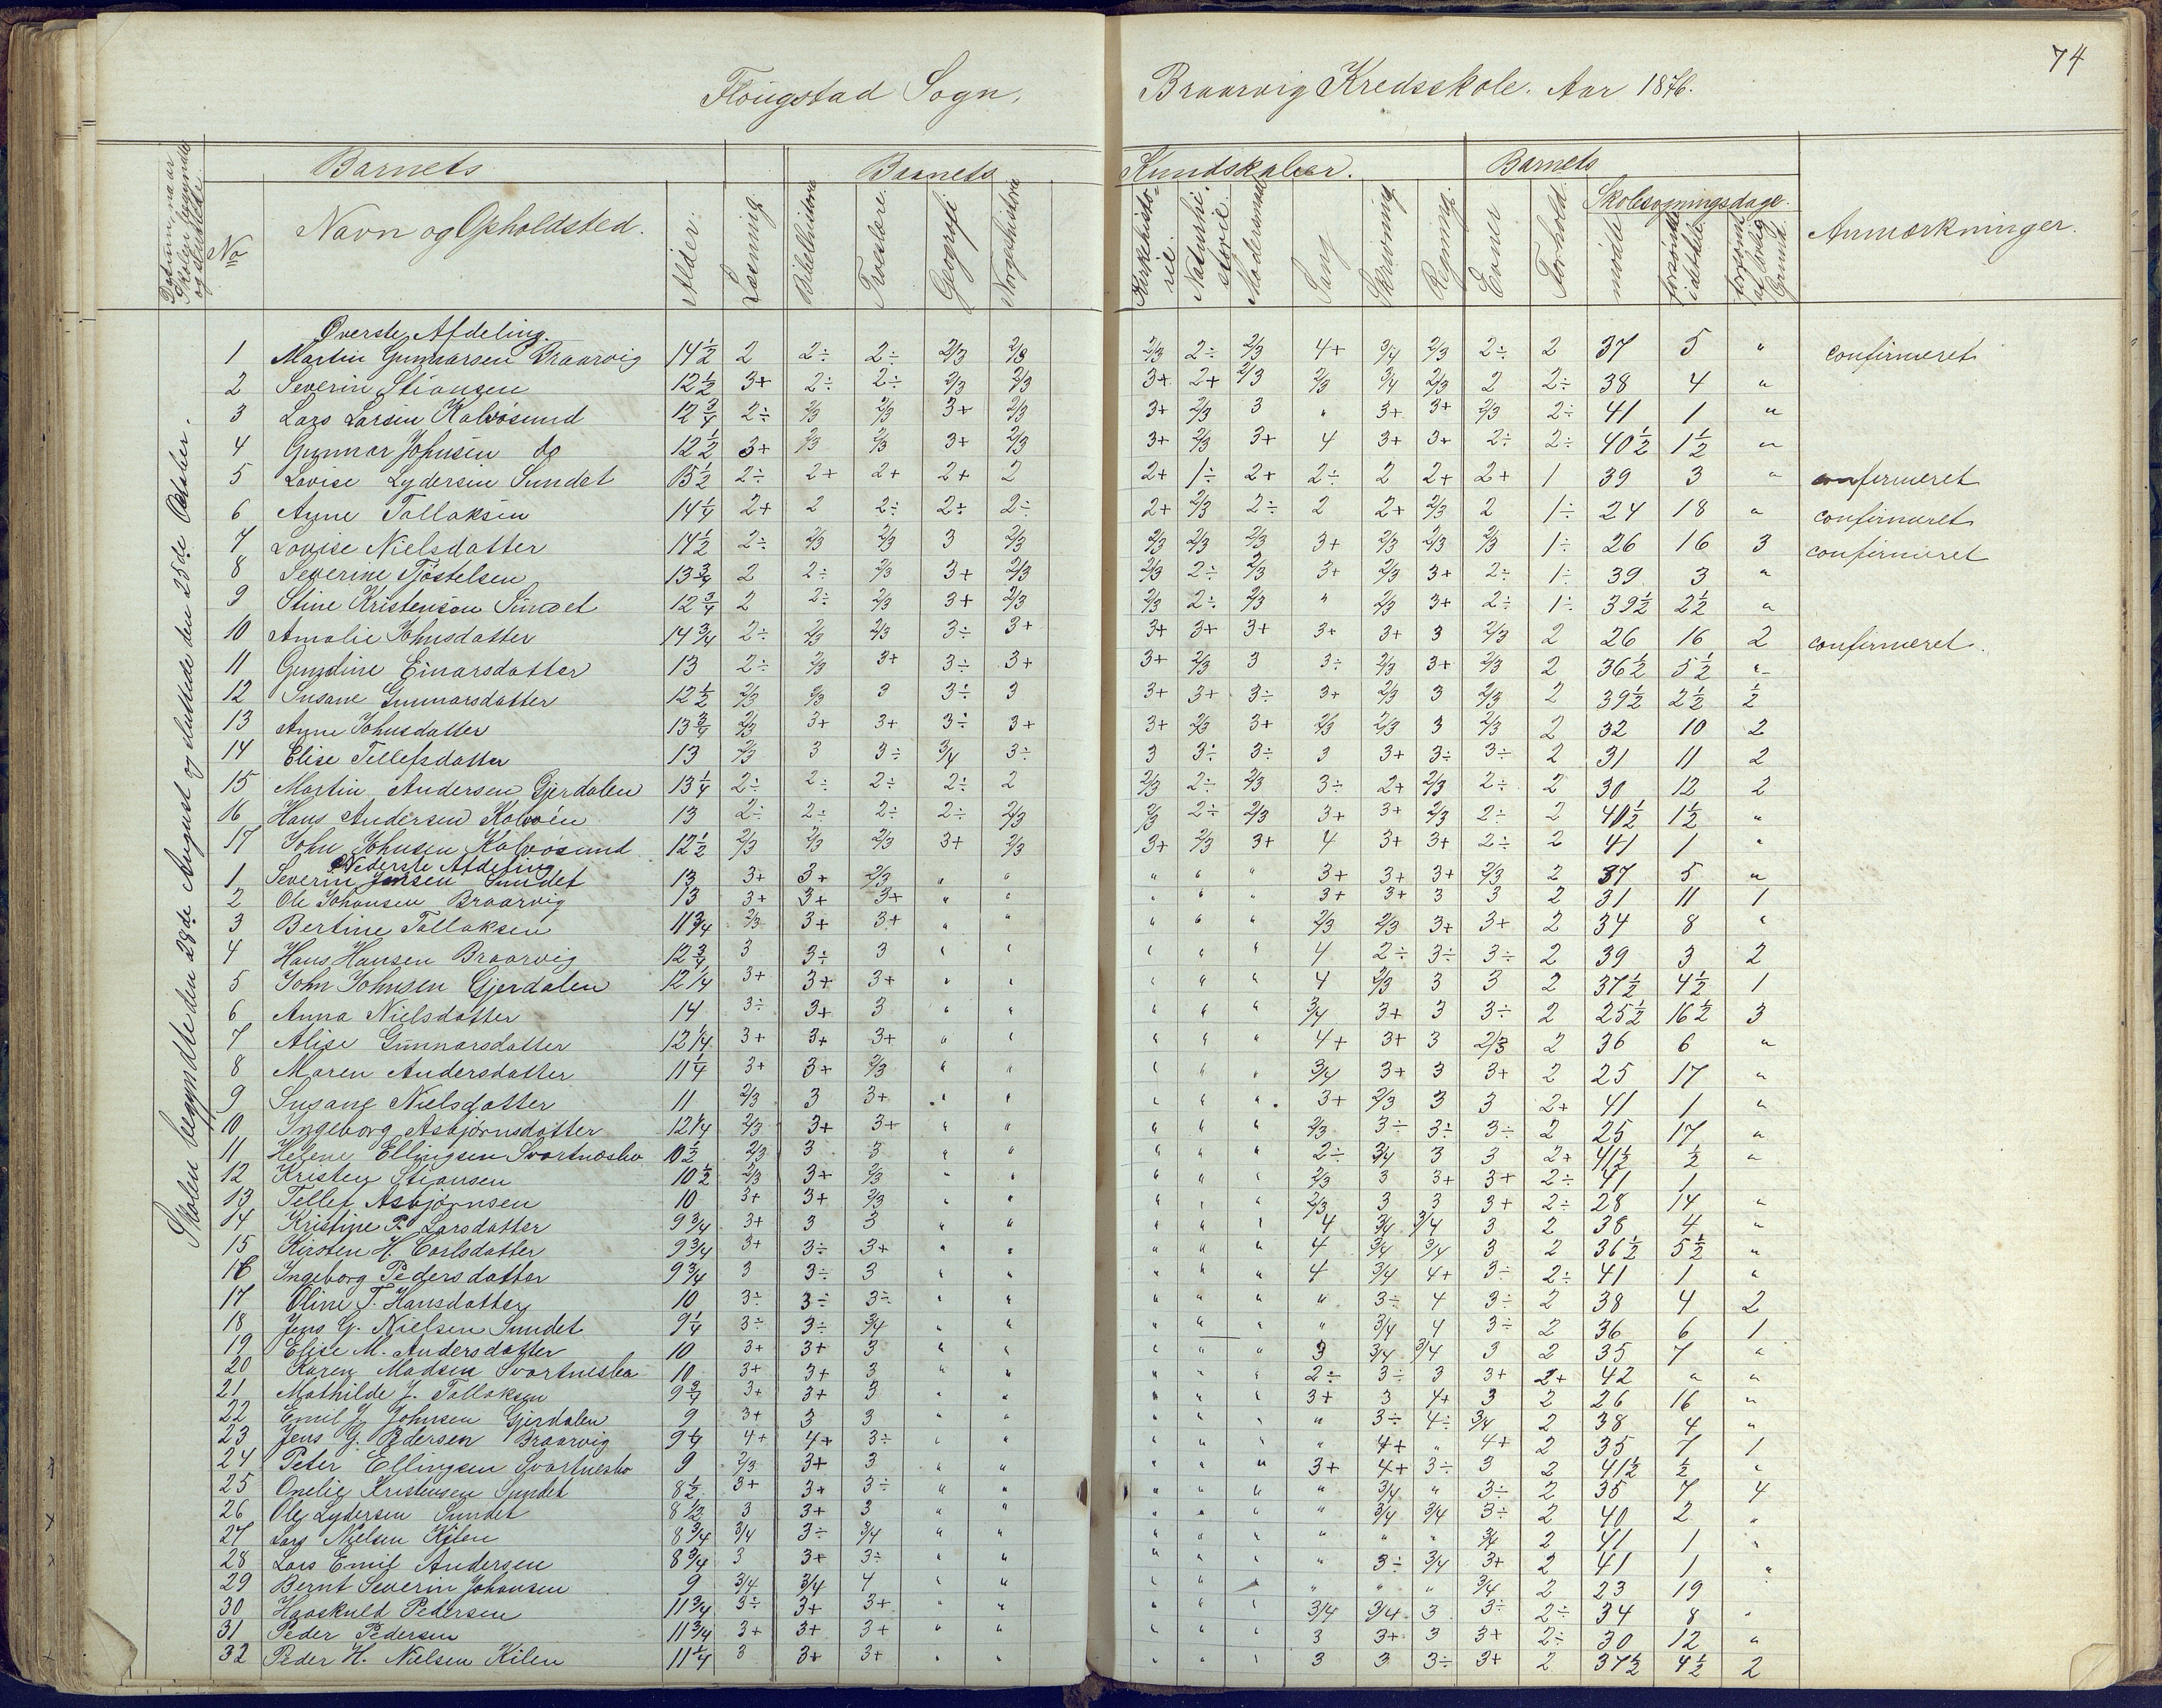 74
Flougstad Sogn, Braarvig Kredsskole. Aar 1876.
Barnets Barnets Kundskaber. Barnets
Datum naar Skolen begyndte og sluttede. No Navn og Opholdsted. Alder. Læsning Bibelhistorie Troeslære. Geografi Norgeshistorie Kirkehistorie Naturhistorie. Modersmaal Sang Skrivning Regning. Evner Forhold. Skolesøgningsdage. mødte forsømte i alt forsømt af lovlig Grund. Anmærkninger.
Skolen begyndte den 28de August og sluttede den 25de October.
Øverste Afdeling.
1 Martin Gunnarsen Braarvig 14½ 2 2÷ 2÷ 2/3 2/3 2/3 2÷ 2/3 4+ 3/4 2/3 2÷ 2 37 5 " confirmeret
2 Severin Stiansen 12½ 3+ 2÷ 2÷ 2/3 2/3 3+ 2+ 2/3 2/3 3/4 2/3 2 2÷ 38 4 "
3 Lars Larsen Kalvøsund 12¾ 2÷ 2/3 2/3 3+ 2/3 3+ 2/3 3 " 3+ 3+ 2/3 2÷ 41 1 "
4 Gunnar Johnsen do 12½ 3+ 2/3 2/3 3+ 2/3 3+ 2/3 3+ 4 3+ 3+ 2÷ 2÷ 40½ 1½ "
5 Lovise Lydersen Sundet 13½ 2÷ 2+ 2+ 2+ 2 2+ 1÷ 2+ 2÷ 2 2+ 2+ 1 39 3 " confirmeret
6 Anne Tallaksen 14¼ 2+ 2 2÷ 2÷ 2÷ 2+ 2/3 2÷ 2 2+ 2/3 2 1÷ 24 18 " confirmeret
7 Lovise Nielsdatter 14½ 2÷ 2/3 2/3 3 2/3 2/3 2/3 2/3 3+ 2/3 2/3 2/3 1÷ 26 16 3 confirmeret
8 Severine Tjøstelsen 13¾ 2 2÷ 2/3 3+ 2/3 2/3 2÷ 2/3 3+ 2/3 3+ 2÷ 1÷ 39 3 "
9 Stine Kristensen Sundet 12¾ 2 2÷ 2/3 3+ 2/3 2/3 2÷ 2/3 " 2/3 3+ 2÷ 1÷ 39½ 2½ "
10 Amalie Johnsdatter 14¾ 2÷ 2/3 2/3 3÷ 3+ 3+ 3+ 3+ 3+ 3+ 3 2/3 2 26 16 2 confirmeret.
11 Gundine Einarsdatter 13 2÷ 2/3 3+ 3÷ 3+ 3+ 2/3 3 3÷ 2/3 3+ 2/3 2 36½ 5½ "
12 Susane Gunnarsdatter 12½ 2/3 2/3 3 3÷ 3 3+ 3+ 3÷ 3+ 2/3 3 2/3 2 39½ 2½ ½
13 Anne Johnsdatter 13¾ 2/3 3+ 3+ 3÷ 3+ 3+ 2/3 3+ 2/3 2/3 3 2/3 2 32 10 2
14 Elise Tellefsdatter 13 2/3 3 3÷ 3/4 3÷ 3 3÷ 3÷ 3 3+ 3÷ 3÷ 2 31 11 2
15 Martin Andersen Gjerdalen 13¼ 2÷ 2÷ 2÷ 2÷ 2 2/3 2÷ 2/3 3÷ 2+ 2/3 2÷ 2 30 12 2
16 Hans Andersen Kalvøen 13 2÷ 2÷ 2÷ 2÷ 2/3 2/3 2÷ 2/3 3+ 3+ 2/3 2÷ 2 40½ 1½ "
17 John Johnsen Kalvøsund 12½ 2/3 2/3 2/3 3+ 2/3 3+ 2/3 3+ 4 3+ 3+ 2÷ 2 41 1 "
Nederste Afdeling
1 Severin Jensen Sundet 13 3+ 3+ 2/3 " " " " " 3+ 3+ 3+ 2/3 2 37 5 "
2 Ole Johansen Braarvig 13 3+ 3+ 3+ " " " " " 3+ 3+ 3 3 2 31 11 1
3 Bertine Tallaksen 11¾ 2/3 3+ 3+ " " " " " 2/3 2/3 3+ 3+ 2 34 8 "
4 Hans Hansen Braarvig 12¾ 3 3÷ 3 " " " " " 4 2÷ 3÷ 3÷ 2 39 3 2
5 John Johnsen Gjerdalen 12¼ 3+ 3+ 3+ " " " " " 4 2/3 3 3 2 37½ 4½ 1
6 Anna Nielsdatter 14 3÷ 3+ 3 " " " " " 3/4 3+ 3 3÷ 2 25½ 16½ 3
7 Alise Gunnarsdatter 12¼ 3+ 3+ 3+ " " " " " 4+ 3+ 3 2/3 2 36 6 "
8 Maren Andersdatter 11¼ 3+ 3+ 2/3 " " " " " 3/4 3+ 3 3+ 2 25 17 "
9 Susane Nielsdatter 11 2/3 3 3+ " " " " " 3+ 2/3 3 3 2+ 41 1 "
10 Ingeborg Asbjørnsdatter 12¼ 2/3 3+ 3+ " " " " " 2/3 3÷ 3÷ 3÷ 2 25 17 "
11 Helene Ellingsen Svartnesbo 10½ 2/3 3 3 " " " " " 2÷ 3/4 3 3 2+ 41½ ½ "
12 Kristen Stiansen 10½ 2/3 3+ 2/3 " " " " " 2/3 3 3+ 3+ 2÷ 41 1
13 Tellef Asbjørnsen 10 3+ 3+ 2/3 " " " " " 2/3 3 3 3+ 2÷ 28 14 "
14 Kristine P. Larsdatter 9¾ 3+ 3 3 " " " " " 4 3/4 3/4 3 2 38 4 "
15 Kirsten H. Carlsdatter 9¾ 3+ 3÷ 3+ " " " " " 4 3/4 3/4 3 2 36½ 5½ "
16 Ingeborg Pedersdatter 9¾ 3 3÷ 3 " " " " " 4 3/4 4+ 3÷ 2÷ 41 1 "
17 Oline T. Hansdatter 10 3÷ 3÷ 3÷ " " " " " " 3÷ 4 3÷ 2 38 4 2
18 Jens G. Nielsen Sundet 9¼ 3÷ 3÷ 3/4 " " " " " " 3/4 4 3÷ 2 36 6 1
19 Elise M. Andersdatter 10 3+ 3+ 3 " " " " " 3 3/4 3/4 3 2 35 7 "
20 Karen Madsen Svartnesbo 10 3+ 3+ 3 " " " " " 2÷ 3÷ 3 3+ 2+ 42 " "
21 Mathilde J. Tallaksen 9¾ 3+ 3+ 3 " " " " " 3+ 3 4+ 3 2 26 16 "
22 Emil J. Johnsen Gjerdalen 9 3+ 3 3 " " " " " " 3÷ 4÷ 3/4 2 38 4 "
23 Jens G. Pedersen Braarvig 9¼ 4+ 4+ 3÷ " " " " " " 4+ " 4+ 2 35 7 1
24 Peter Ellingsen Svartnesbo 9 2/3 3+ 3 " " " " " 3+ 4+ 3÷ 3 2 41½ ½ "
25 Onelie Kristensen Sundet 8½ 3+ 3+ 3÷ " " " " " " 3/4 " 3÷ 2 35 7 4
26 Ole Lydersen Sundet 8½ 3 3+ 3 " " " " " " 3/4 3/4 3÷ 2 40 2 "
27 Lars Nielsen Kilen 8¾ 3/4 3÷ 3/4 " " " " " " " " 3/4 2 41 1 "
28 Lars Emil Andersen 8¾ 3 3+ 3÷ " " " " " " 3÷ 3/4 3+ 2 41 1 "
29 Bernt Severin Johansen 9 3/4 3/4 4 " " " " " " " " 3/4 2 23 19 "
30 Haaskuld Pedersen 11¾ 3÷ 3+ 3+ " " " " " 3/4 3/4 3 3÷ 2÷ 34 8 "
31 Peder Pedersen 11¾ 3+ 3+ 3+ " " " " " 3 3+ 3 3+ 2÷ 30 12 "
32 Peder H. Nielsen Kilen 11¼ 3 3+ 3+ " " " " " 3 3 3÷ 3+ 2 37½ 4½ 2